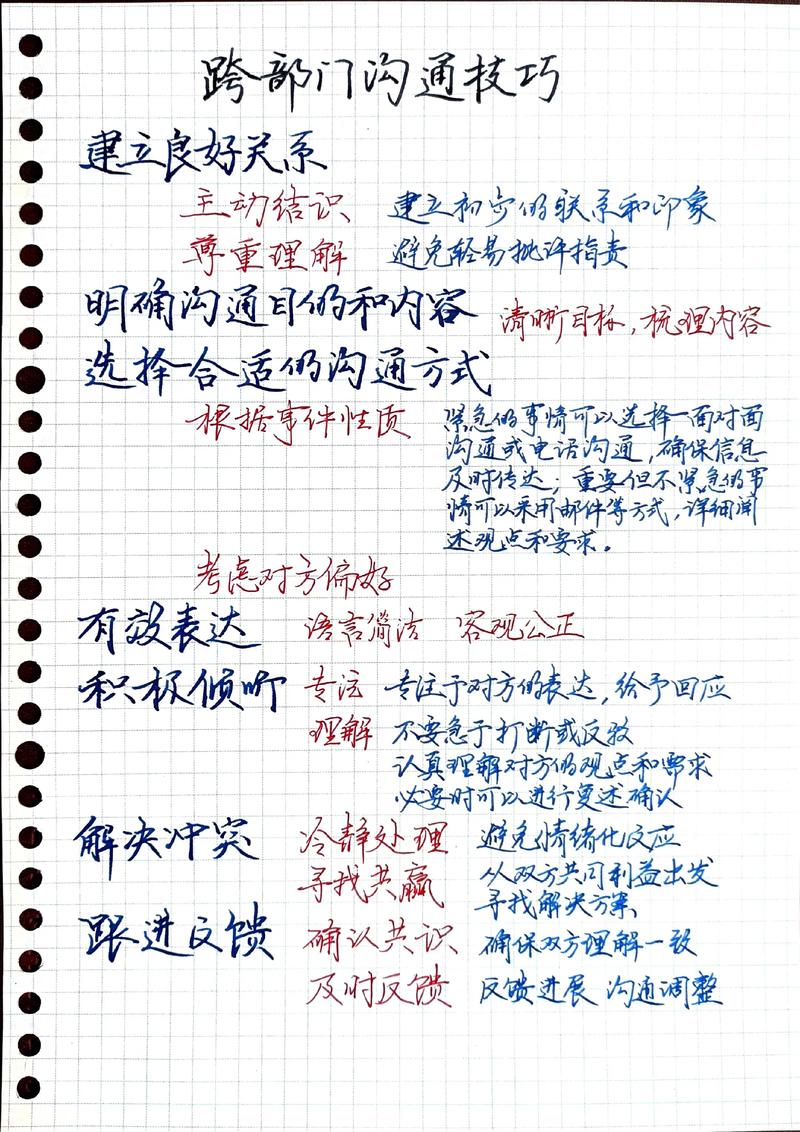 跨部门沟通技巧
建立良好关系
主动结识 建立初步的联系和印象
尊重理解 避免轻易批评指责
明确沟通目的和内容 清晰目标，梳理内容
选择合适的沟通方式
根据事件性质 紧急的事情可以选择面对面
沟通或电话沟通，确保信息
及时传达；重要但不紧急的事
情可以采用邮件等方式，详细阐
述观点和要求。
考虑对方偏好
有效表达 语言简洁 客观公正
积极倾听 专注 专注于对方的表达，给予回应
理解 不要急于打断或反驳
认真理解对方的观点和需求
必要时可以进行复述确认
解决冲突 冷静处理 避免情绪化反应
寻找共赢 从双方共同利益出发
寻找解决方案
跟进反馈 确认共识 确保双方理解一致
及时反馈 反馈进展 沟通调整